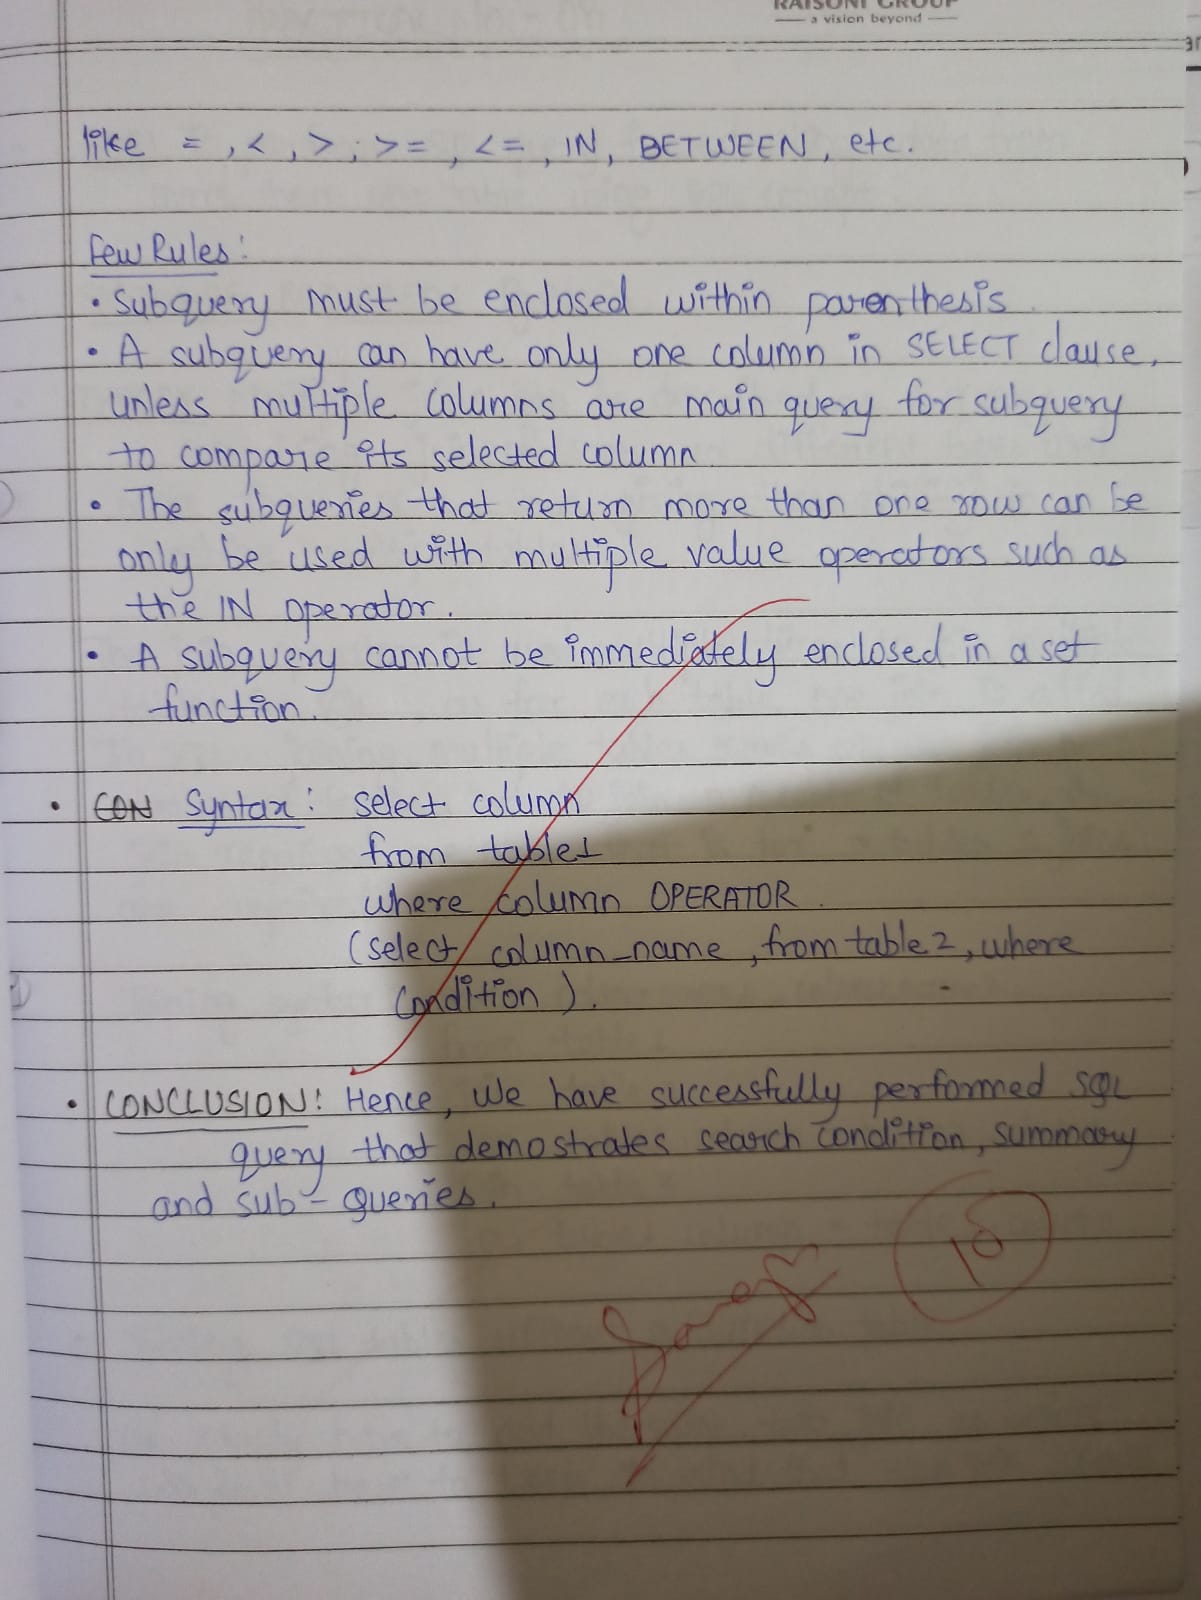 RAISONI GROUP
— a vision beyond —
like = , < , > , >= , <= , IN, BETWEEN, etc.
few Rules:
• Subquery must be enclosed within parenthesis.
• A subquery can have only one column in SELECT clause,
unless multiple columns are main query for subquery
to compare its selected column
• The subqueries that return more than one row can be
only be used with multiple value operators such as
the IN operator.
• A subquery cannot be immediately enclosed in a set
function.
• CON Syntax: select column
from table1
where column OPERATOR.
(select column_name, from table 2, where
condition).
• CONCLUSION: Hence, We have successfully performed SQL
query that demostrates search condition, summary
and sub-queries.
10